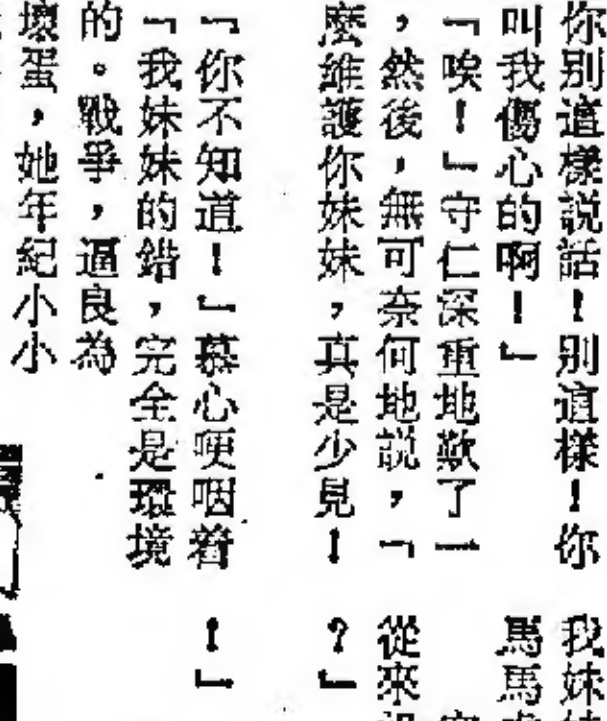 你别這樣説話！别這樣！你
叫我傷心的啊！」
「唉！」守仁深重地歎了一
，然後，無可奈何地説，「
麼維護你妹妹，真是少見！
「你不知道！」慕心哽咽着
「我妹妹的錯，完全是環境
的。戰爭，逼良為
壞蛋，她年紀小小
我妹
馬馬
從來
？」
！」